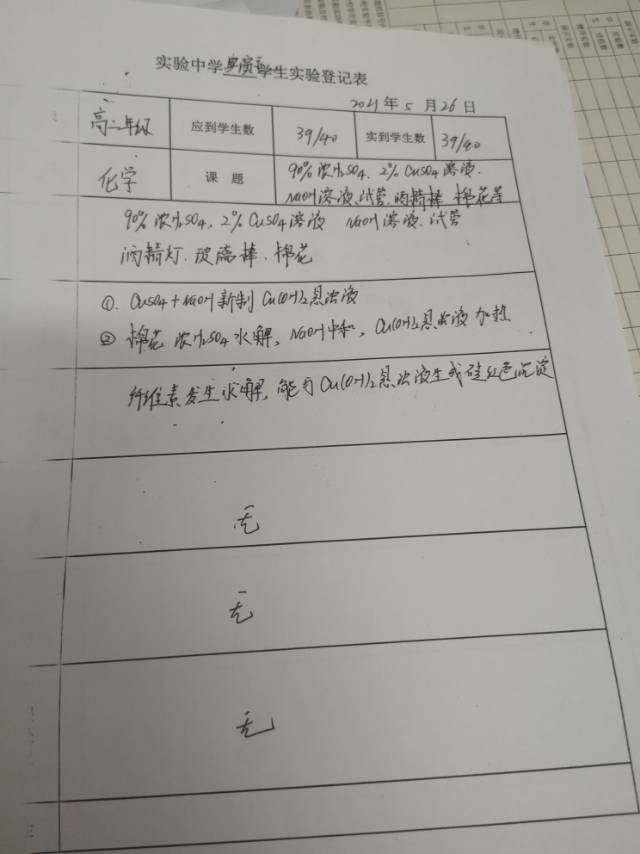 实验中学学生实验登记表
2021年5月26日
高二年级 应到学生数 39/40 实到学生数 39/40
化学 课题 90% 浓H₂SO₄. 2% CuSO₄ 溶液.
NaOH溶液.试管.酒精棒 棉花等
90% 浓H₂SO₄, 2% CuSO₄溶液 NaOH溶液. 试管
酒精灯. 玻璃棒. 棉花
①. CuSO₄+NaOH新制Cu(OH)₂悬浊液
② 棉花 浓H₂SO₄水解, NaOH中和, Cu(OH)₂悬浊液加热.
纤维素发生水解, 能与Cu(OH)₂悬浊液生成砖红色沉淀
无
无
无